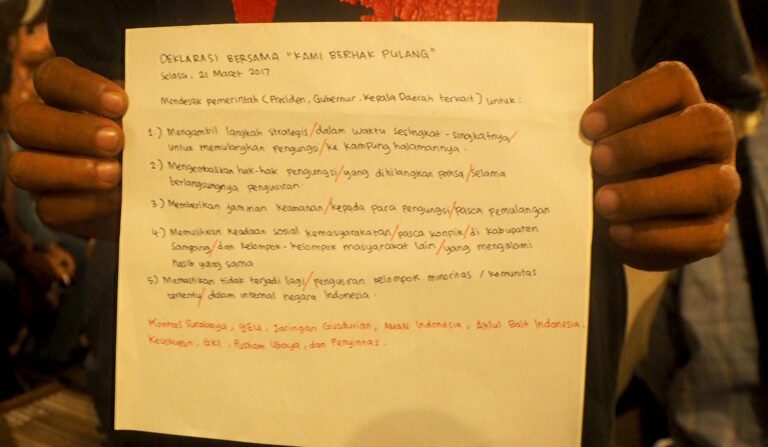 DEKLARASI BERSAMA "KAMI BERHAK PULANG"
Selasa, 21 Maret 2017
Mendesak pemerintah (Presiden, Gubernur, Kepala Daerah terkait) untuk :
1.) Mengambil langkah strategis/dalam waktu sesingkat-singkatnya/
untuk memulangkan pengungsi/ke kampung halamannya.
2.) Mengembalikan hak-hak pengungsi/yang dihilangkan paksa/selama
berlangsungnya pengusiran
3.) Memberikan jaminan keamanan/kepada para pengungsi/pasca pemulangan
4.) Memulihkan keadaan sosial kemasyarakatan/pasca konflik/di Kabupaten
Sampang/dan kelompok-kelompok masyarakat lain/yang mengalami
nasib yang sama.
5.) Memastikan tidak terjadi lagi/pengusiran kelompok minoritas/komunitas
tertentu/dalam internal negara Indonesia.
Kontras Surabaya, YEU, Jaringan Gusdurian, AMAN Indonesia, Ahlul Bait Indonesia,
Keuskupan, GKI, Pusham Ubaya, dan Penyintas.